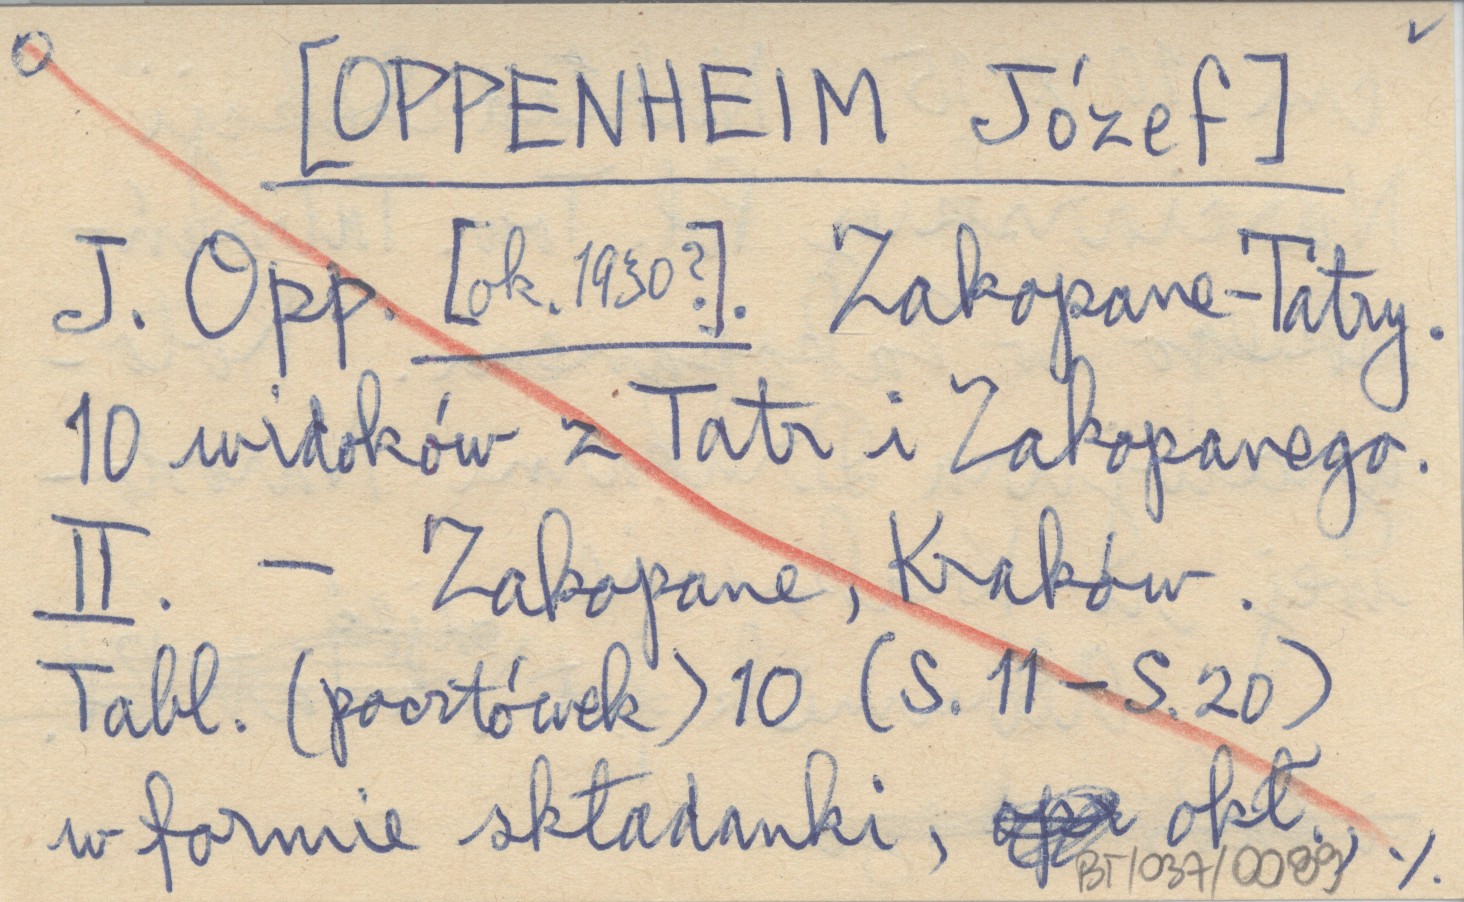 [OPPENHEIM Józef]
J. Opp. [ok. 1930?]. Zakopane-Tatry.
10 widoków z Tatr i Zakopanego.
II. — Zakopane, Kraków.
Tabl. (pocztówek) 10 (S. 11 – S. 20)
w formie składanki, okł., ·/.
BT/037/0089